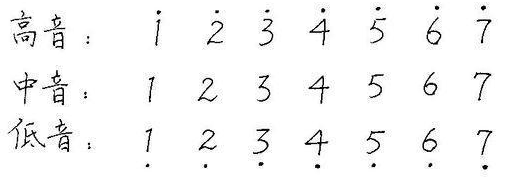 高音： 1̇ 2̇ 3̇ 4̇ 5̇ 6̇ 7̇
中音： 1 2 3 4 5 6 7
低音： 1̣ 2̣ 3̣ 4̣ 5̣ 6̣ 7̣